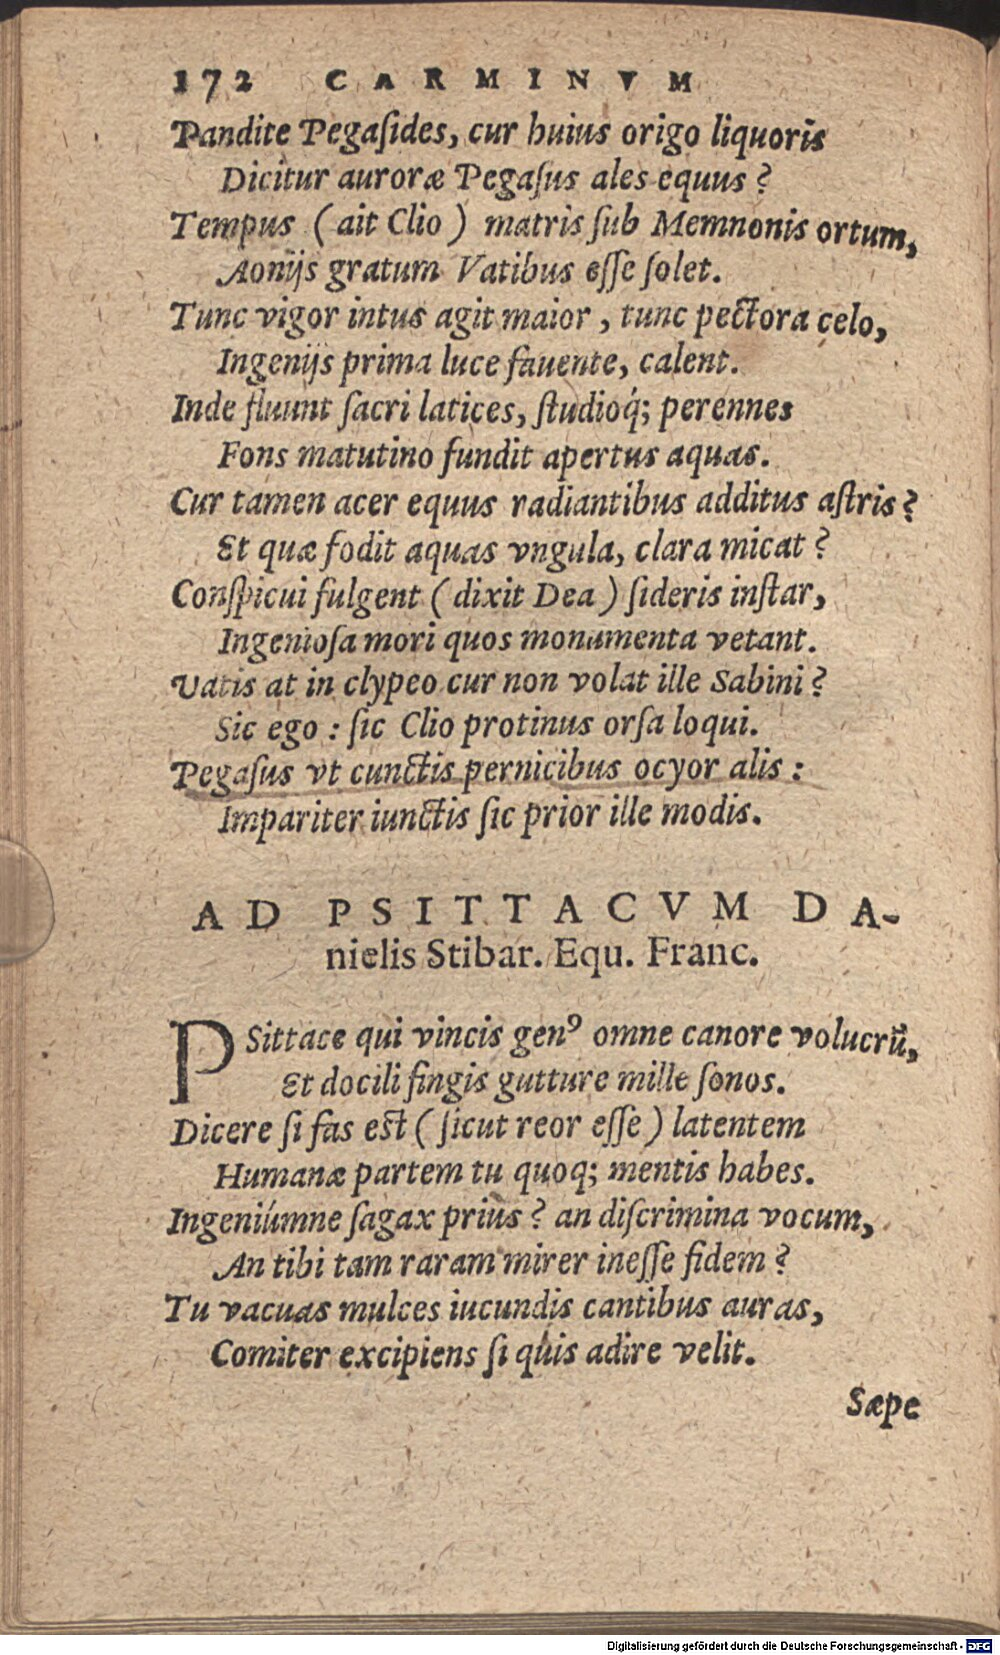 172 CARMINVM
Pandite Pegaſides, cur huius origo liquoris
Dicitur auroræ Pegaſus ales equus?
Tempus (ait Clio) matris ſub Memnonis ortum,
Aonijs gratum Vatibus eſſe ſolet.
Tunc vigor intus agit maior, tunc pectora celo,
Ingenijs prima luce fauente, calent.
Inde fluunt ſacri latices, ſtudioq́; perennes
Fons matutino fundit apertus aquas.
Cur tamen acer equus radiantibus additus aſtris?
Et quæ fodit aquas vngula, clara micat?
Conſpicui fulgent (dixit Dea) ſideris inſtar,
Ingenioſa mori quos monumenta vetant.
Vatis at in clypeo cur non volat ille Sabini?
Sic ego: ſic Clio protinus orſa loqui.
Pegaſus vt cunctis pernicibus ocyor alis:
Impariter iunctis ſic prior ille modis.
AD PSITTACVM DA-
nielis Stibar. Equ. Franc.
PSittace qui vincis genꝰ omne canore volucrũ,
Et docili fingis gutture mille ſonos.
Dicere ſi fas eſt (ſicut reor eſſe) latentem
Humanæ partem tu quoq; mentis habes.
Ingeniúmne ſagax prius? an diſcrimina vocum,
An tibi tam raram mirer ineſſe fidem?
Tu vacuas mulces iucundis cantibus auras,
Comiter excipiens ſi quis adire velit.
Sæpe
Digitalisierung gefördert durch die Deutsche Forschungsgemeinschaft - DFG